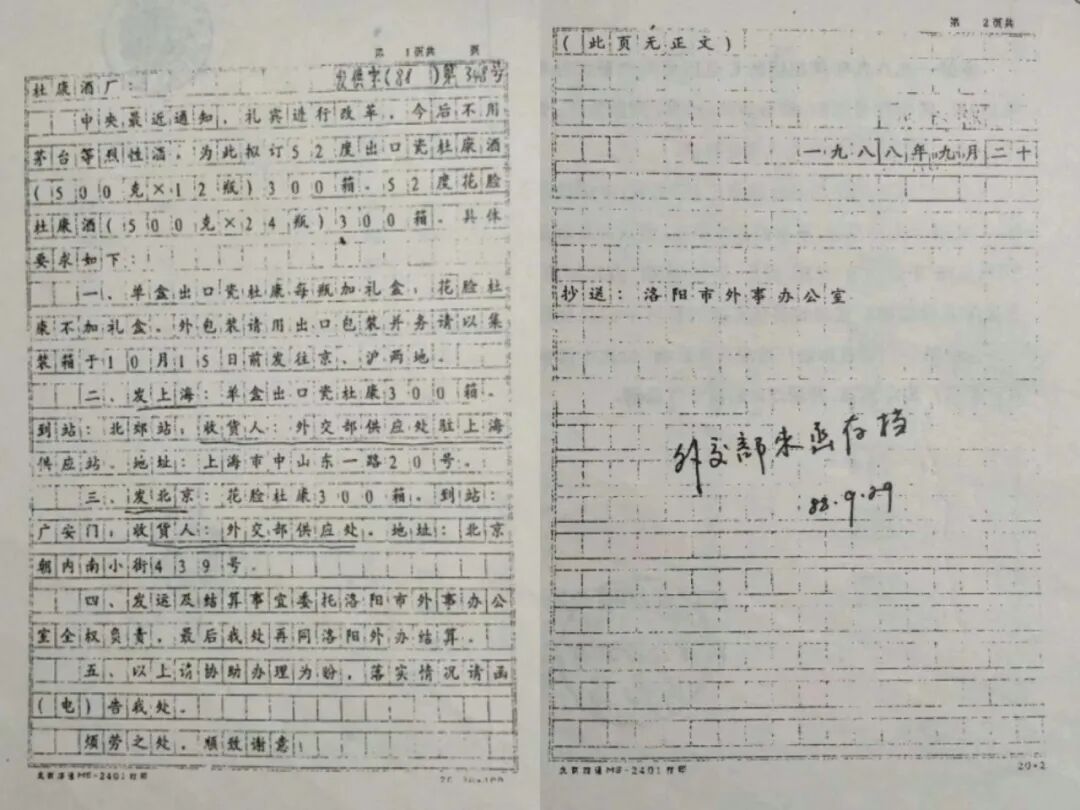 第 1页共 页
发供字(88 )第348号
杜康酒厂：
中央最近通知，礼宾进行改革，今后不用
茅台等烈性酒，为此拟订52度出口瓷杜康酒
(500克×12瓶)300箱。52度花脸
杜康酒(500克×24瓶)300箱。具体
要求如下：
一、单盒出口瓷杜康每瓶加礼盒，花脸杜
康不加礼盒。外包装请用出口包装并务请以集
装箱于10月15日前发往京、沪两地。
二、发上海：单盒出口瓷杜康300箱。
到站：北郊站，收货人：外交部供应处驻上海
供应站。地址：上海市中山东一路20号。
三、发北京：花脸杜康300箱。到站：
广安门，收货人：外交部供应处。地址：北京
朝内南小街439号。
四、发运及结算事宜委托洛阳市外事办公
室全权负责，最后我处再同洛阳外办结算。
五、以上请协助办理为盼，落实情况请函
(电)告我处。
烦劳之处，顺致谢意
北京四通MS-2401打印
第 2页共
(此页无正文)
一九八八年九月二十
抄送：洛阳市外事办公室
外交部来函存档
88.9.29
北京四通MS-2401打印
20×2